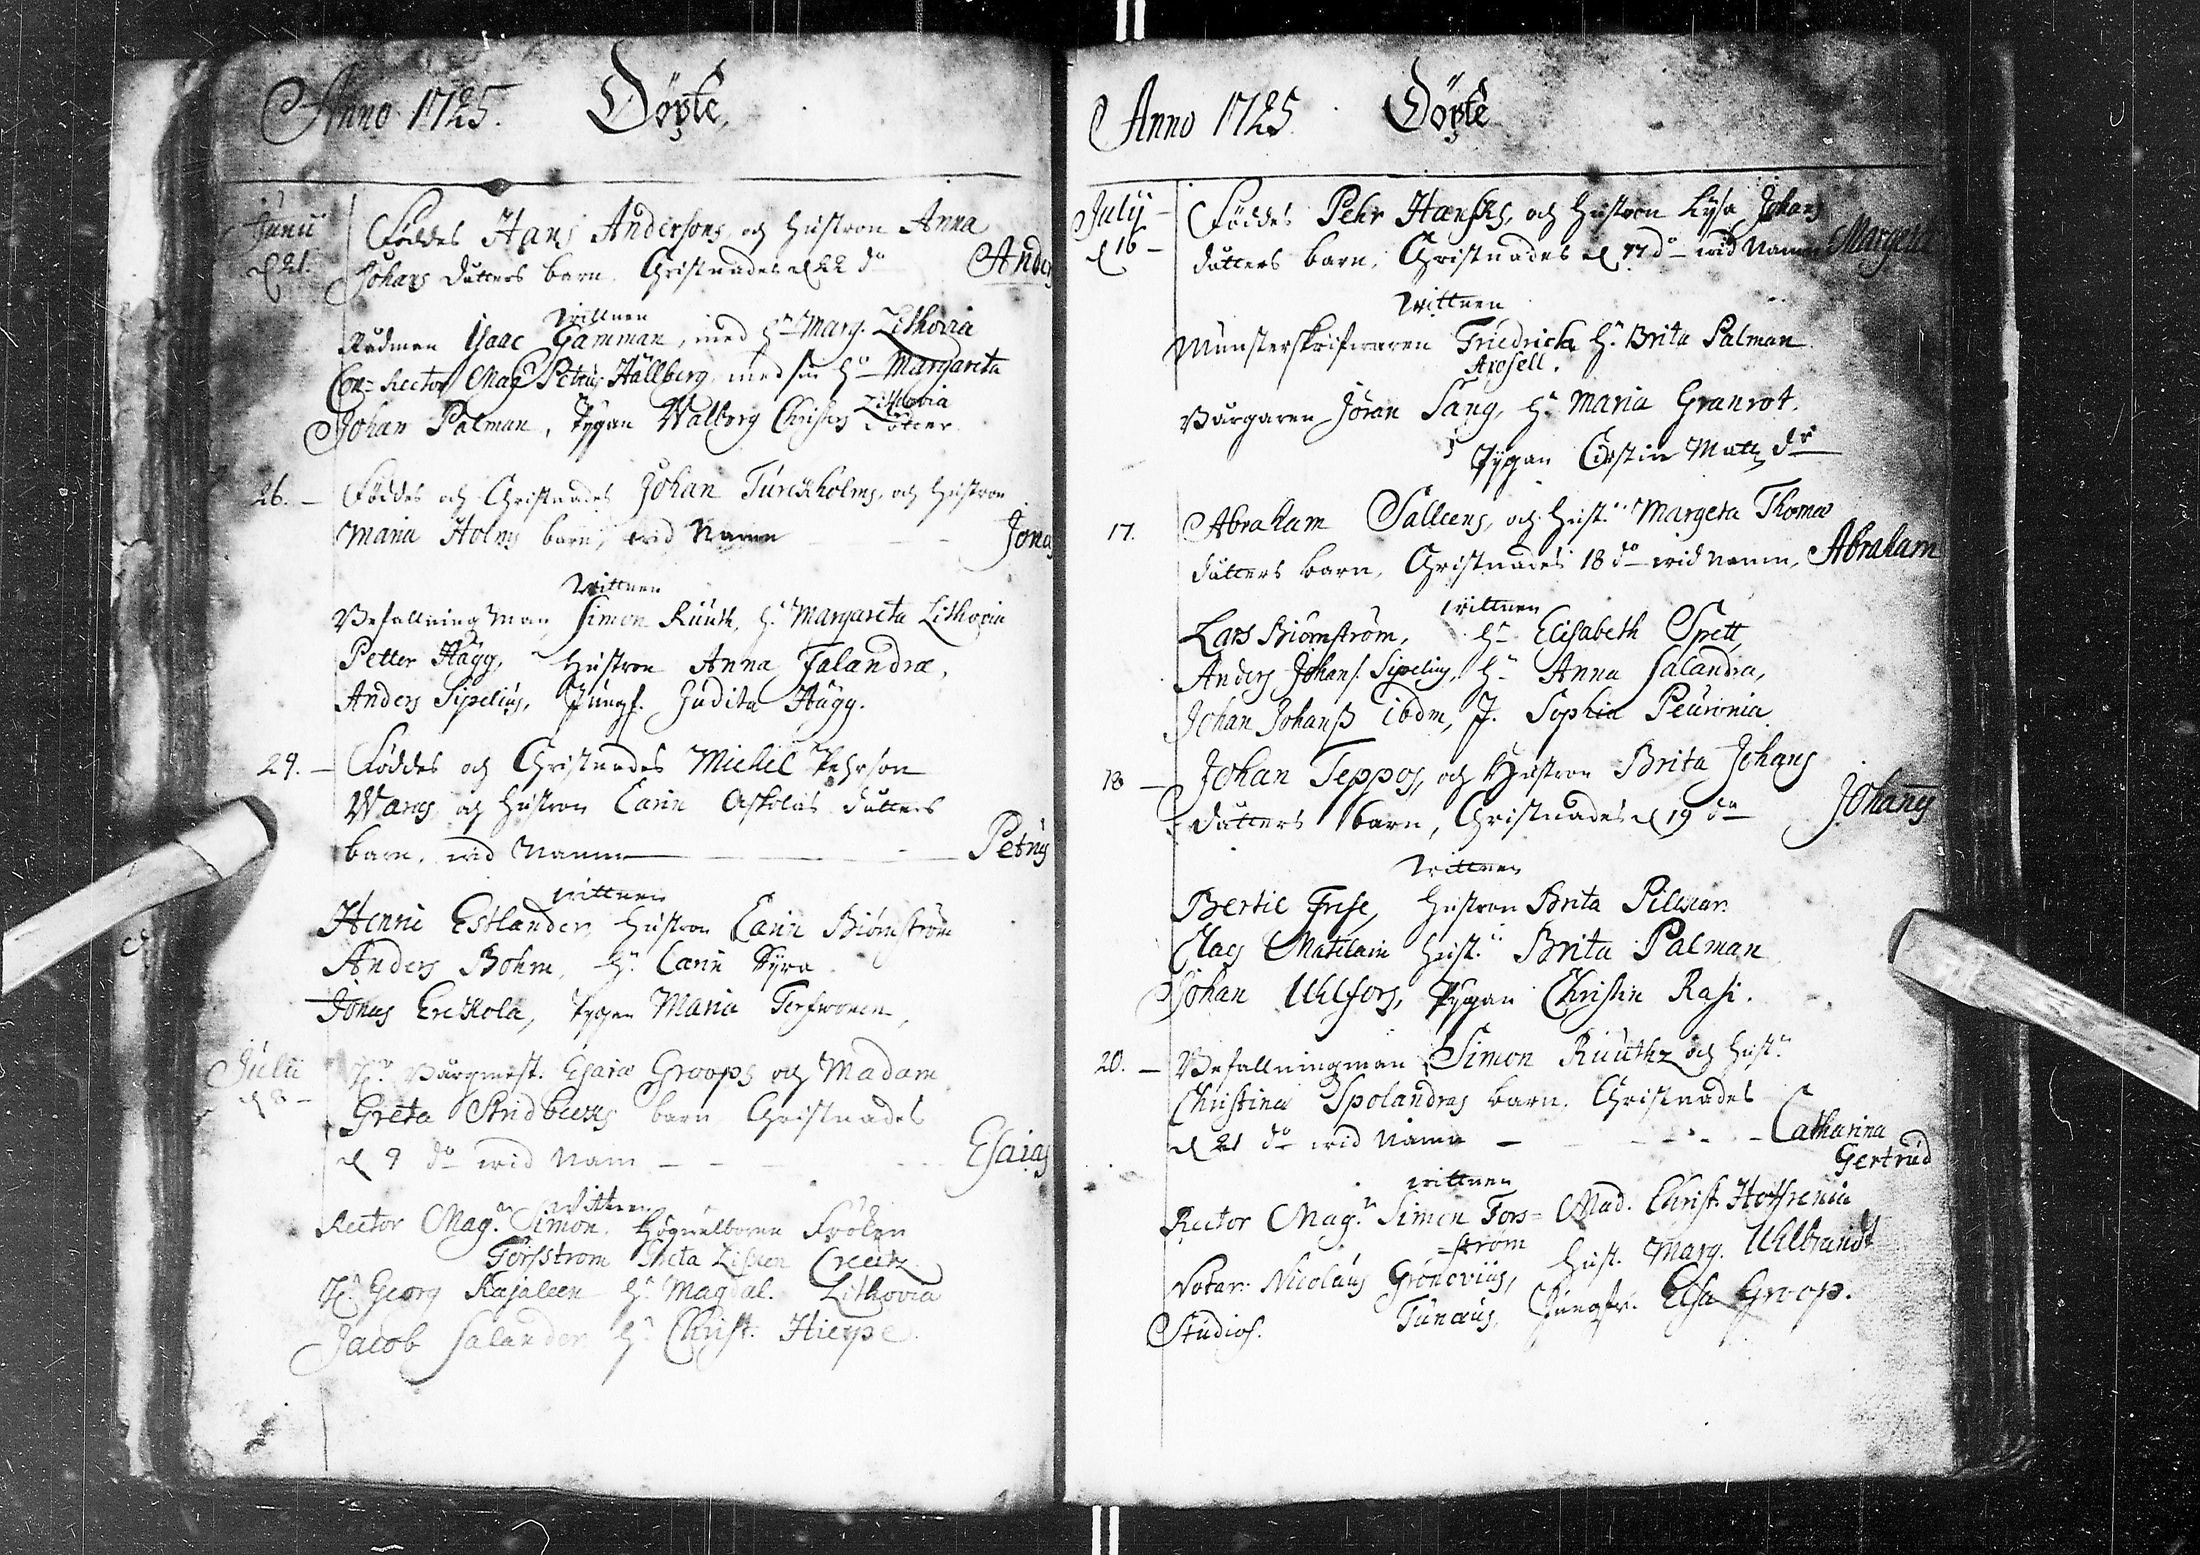 Anno 1725. Döpte.
Junii
d 21.
Föddes Hans Andersons, och Hustron Anna
Johans dutters barn. Christnades d 22 do Anders
wittnen
Rådman Isaac Gamman, med Hu Marg. Lithovia
Con=Rector Mag. Petrus Hållberg, med sin Hu Margareta
Lithovia
Johan Palman, Pygan Walborg Christers dotter.
26. — Föddes och Christnades Johan Turckholms, och Hustron
Maria Holms barn, wid Namn — Jonas
wittnen
Befallningman Simon Ruuth, H. Margareta Lithovia
Petter Hägg, Hustron Anna Falandra,
Anders Sipelius, Jungf. Judita Hägg.
29. — Föddes och Christnades Michel Pehrson
Wares, och Hustron Carin Askolas dutters
barn, wid Namn — Petrus
wittnen
Henric Estlander, Hustron Carin Biörnström
Anders Bohm, Hu Carin Syra
Jonas Erckola, Pygan Maria
Julii
d 8 —
Hr Borgmest. Esaiæ Groops och Madam
Greta barn Christnades
d 9 do wid Namn — Esaias
wittnen
Rector Mag. Simon Högwelborne Fröken
Forsström Greta Lisken Creutz
Hr Georg Kajaleen Hu Magdal. Lithovia
Jacob Salander Hu Christ. Hierpe.
Anno 1725. Döpte
July —
d 16 —
Föddes Pehr Hansks, och Hustron Lysa Johans
dutters barn, Christnades d 17 do wid Namn Margeta
wittnen
Munsterskrifwaren Friedrich Hu Brita Palman.
Arosell.
Borgaren Jöran Sang, Hu Maria Granrot.
Pygan Cirstin Matz dr
17. Abraham Salleens, och Hust. Margeta Thomæ
dutters barn, Christnades 18 do wid namn, Abraham
wittnen
Lars Biörnström, Hu Elisabeth Spett,
Anders Johans. Sipelius, Hu Anna Salandra,
Johan Johanss. ibdm, J. Sophia Peuronia
18 — Johan Teppos, och Hustron Brita Johans
dutters barn, Christnades d 19 do Johannes
wittnen
Bertil Frese, Hustron Brita Pilman.
Clas Matilain Hust. Brita Palman
Johan Uhlfors, Pygan Christin Rasi.
20. — Befallningman Simon Ruuthz och Hust.
Christina Spolandras barn. Christnades
d 21 do wid Namn — Catharina
Gertrud
wittnen
Rector Mag. Simon Fors= Mad. Christ. Hoffrenia
=ström
Notar. Nicolaus Gronovius, Hust. Marg. Uhlbrandt
Studios. Tunæus, Jungfr. Elsa Groop.